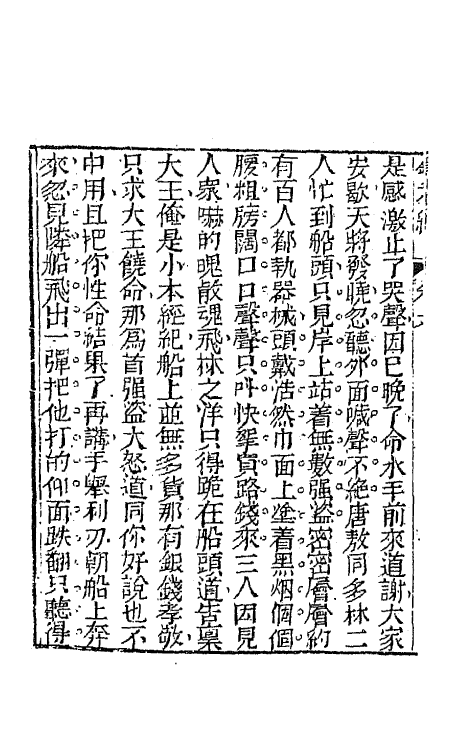 是感激止了哭聲因已晚了命水手前來道謝大家
安歇天將發曉忽聽外面喊聲不絕唐敖同多林二
人忙到船頭只見岸上站着無數强盜密密層層約
有百人都執器械頭戴浩然巾面上塗着黑烟個個
腰粗膀闊口口聲聲只叫快拏買路錢來三人因見
人衆嚇的魄散魂飛林之洋只得跪在船頭道告稟
大王俺是小本經紀船上並無多貨那有銀錢孝敬
只求大王饒命那爲首强盜大怒道同你好說也不
中用且把你性命結果了再講手舉利刃朝船上奔
來忽見隣船飛出一彈把他打的仰面跌翻只聽得